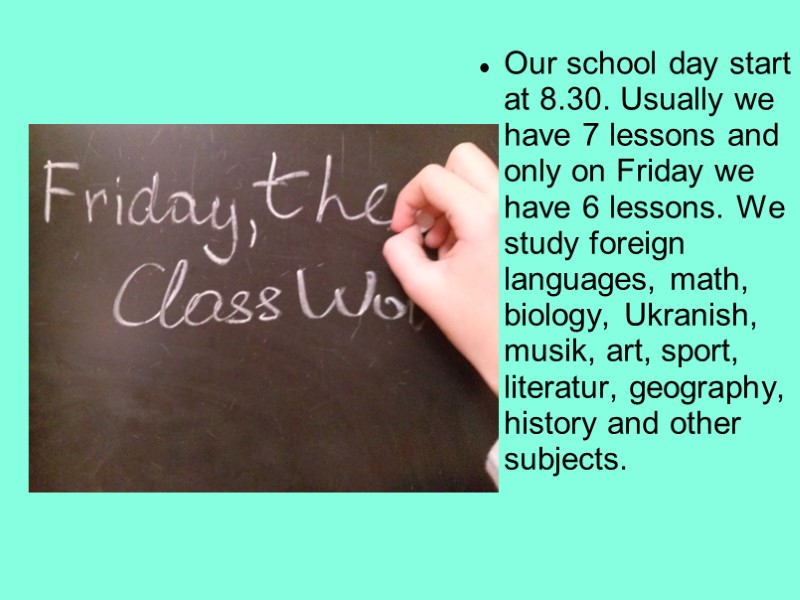 Friday, the
Class Wo
Our school day start
at 8.30. Usually we
have 7 lessons and
only on Friday we
have 6 lessons. We
study foreign
languages, math,
biology, Ukranish,
musik, art, sport,
literatur, geography,
history and other
subjects.